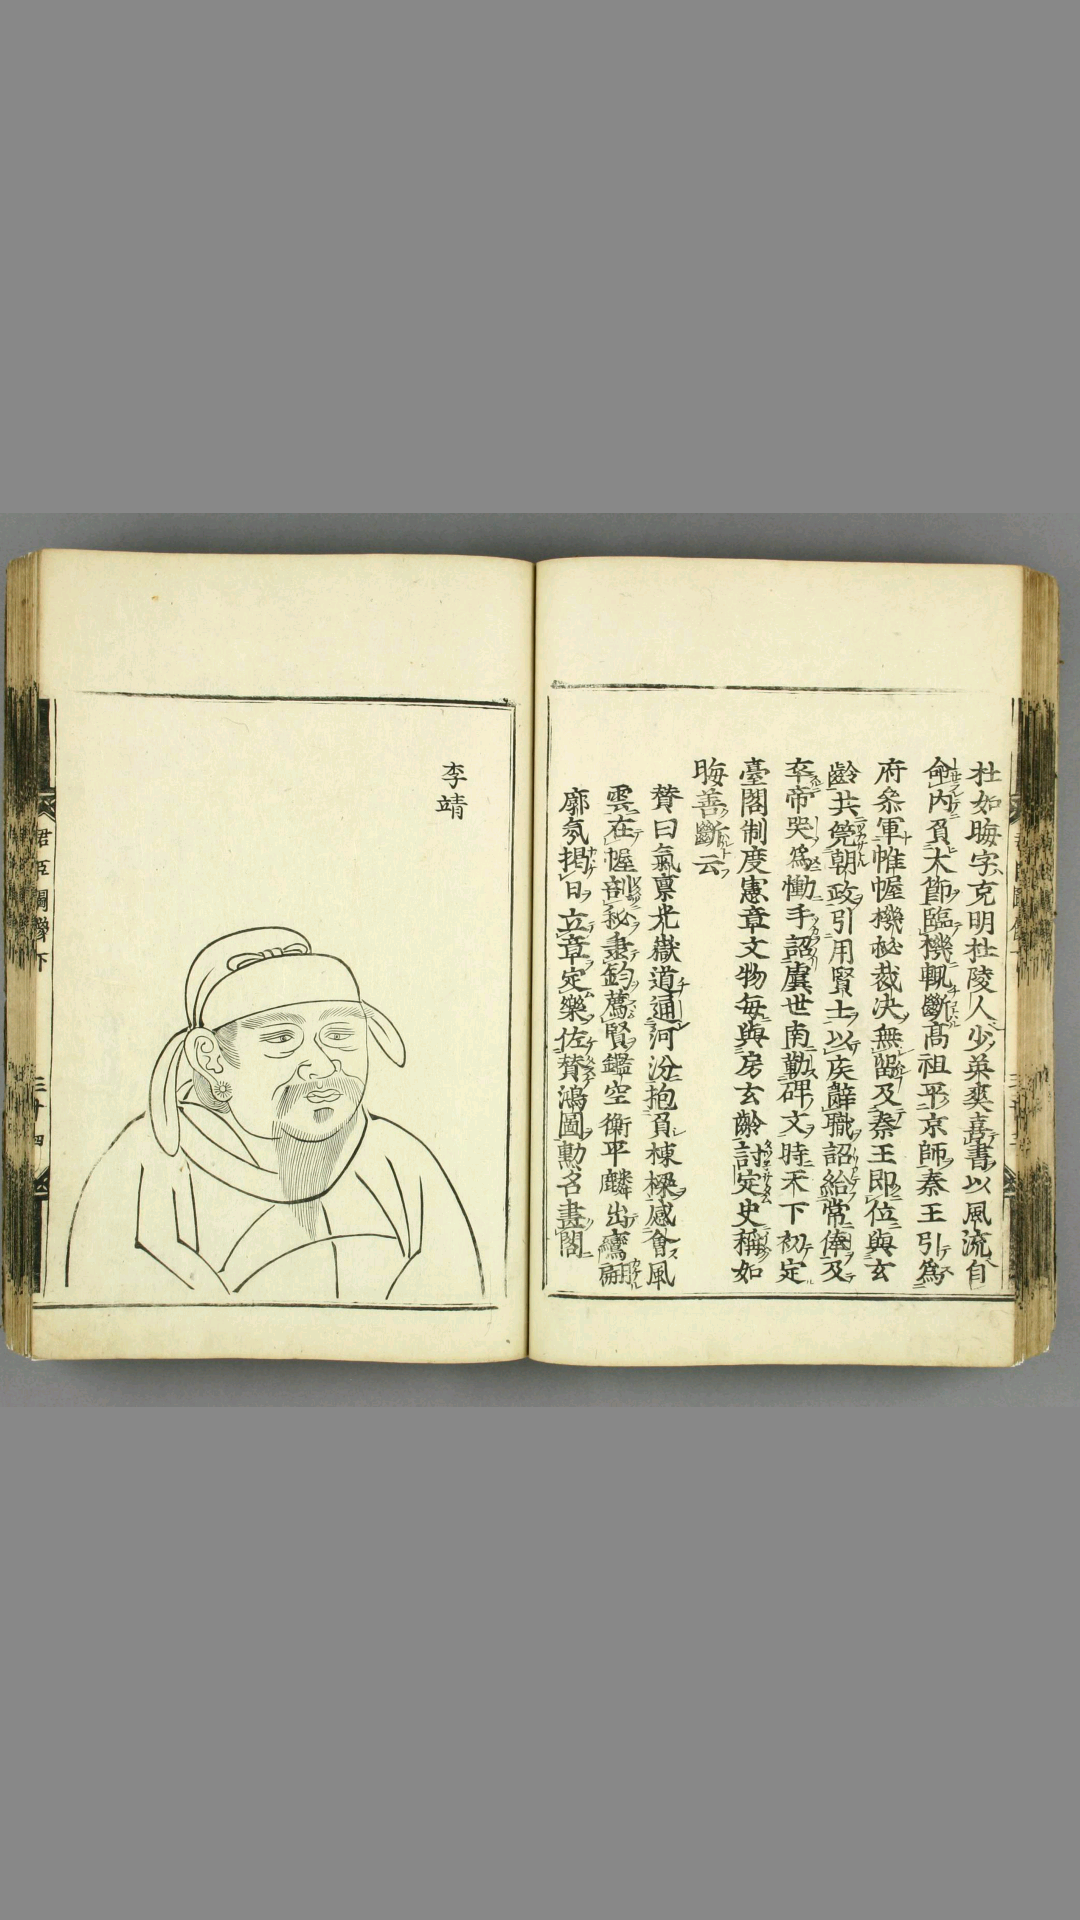 杜如晦字克明杜陵人少英爽喜書以風流自
命内負大節臨機輒斷髙祖平京師秦王引爲
府叅軍帷幄機祕裁决無留及秦王即位與玄
齡共筦朝政引用賢士以疾辭職詔給常俸及
卒帝哭爲慟手詔虞世南勒碑文時天下初定
臺閣制度憲章文物每與房玄齡討定史稱如
晦善斷云
賛曰氣禀光嶽道通河汾抱負棟樑感會風
雲在幄剖秘秉鈞薦賢鑑空衡平麟出鸞翩
廓氛掲日立章定樂佐賛鴻圖勲名畫閣
李靖
君臣圖像下
三十四